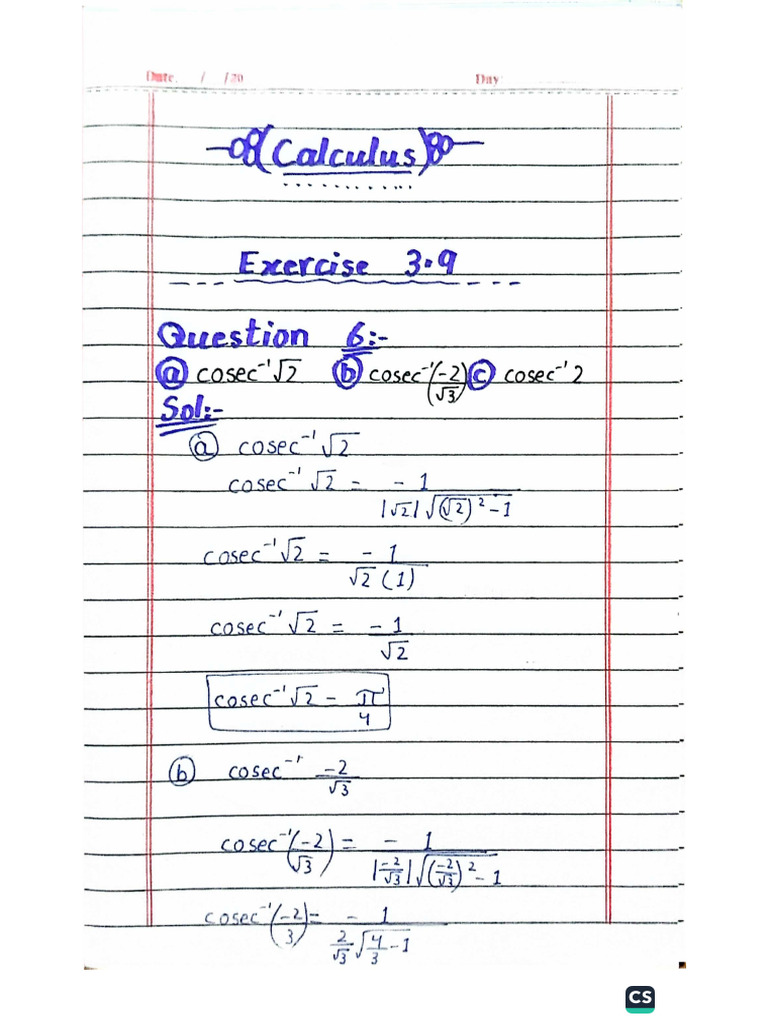 Date. / /20 Day:
Calculus
Exercise 3.9
Question 6:-
(a) cosec⁻¹√2 (b) cosec⁻¹(-2/√3) (c) cosec⁻¹ 2
Sol:-
(a) cosec⁻¹√2
cosec⁻¹√2 = -1/|√2|√(√2)²-1
cosec⁻¹√2 = -1/√2(1)
cosec⁻¹√2 = -1/√2
cosec⁻¹√2 = π/4
(b) cosec⁻¹ -2/√3
cosec⁻¹(-2/√3) = -1/|-2/√3|√(-2/√3)²-1
cosec⁻¹(-2/3) = -1/2/√3√4/3-1
CS